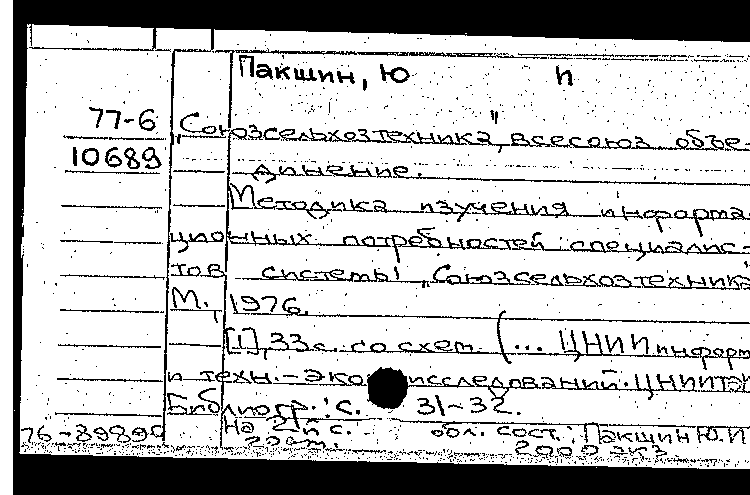 Пакшин, Ю п
77-6 „Союзсельхозтехника", всесоюз. объе-
10689 динение.
Методика изучения информа-
ционных потребностей специалис-
тов системы „Союзсельхозтехника"
М., 1976.
[1], 33с. со схем. (... ЦНИИ информ
и техн.-экон исследований. ЦНИИТЭИ
Библиогр.: с. 31-32.
На 2й с. обл. сост.: Пакшин Ю.И
76-89895 2000 экз.